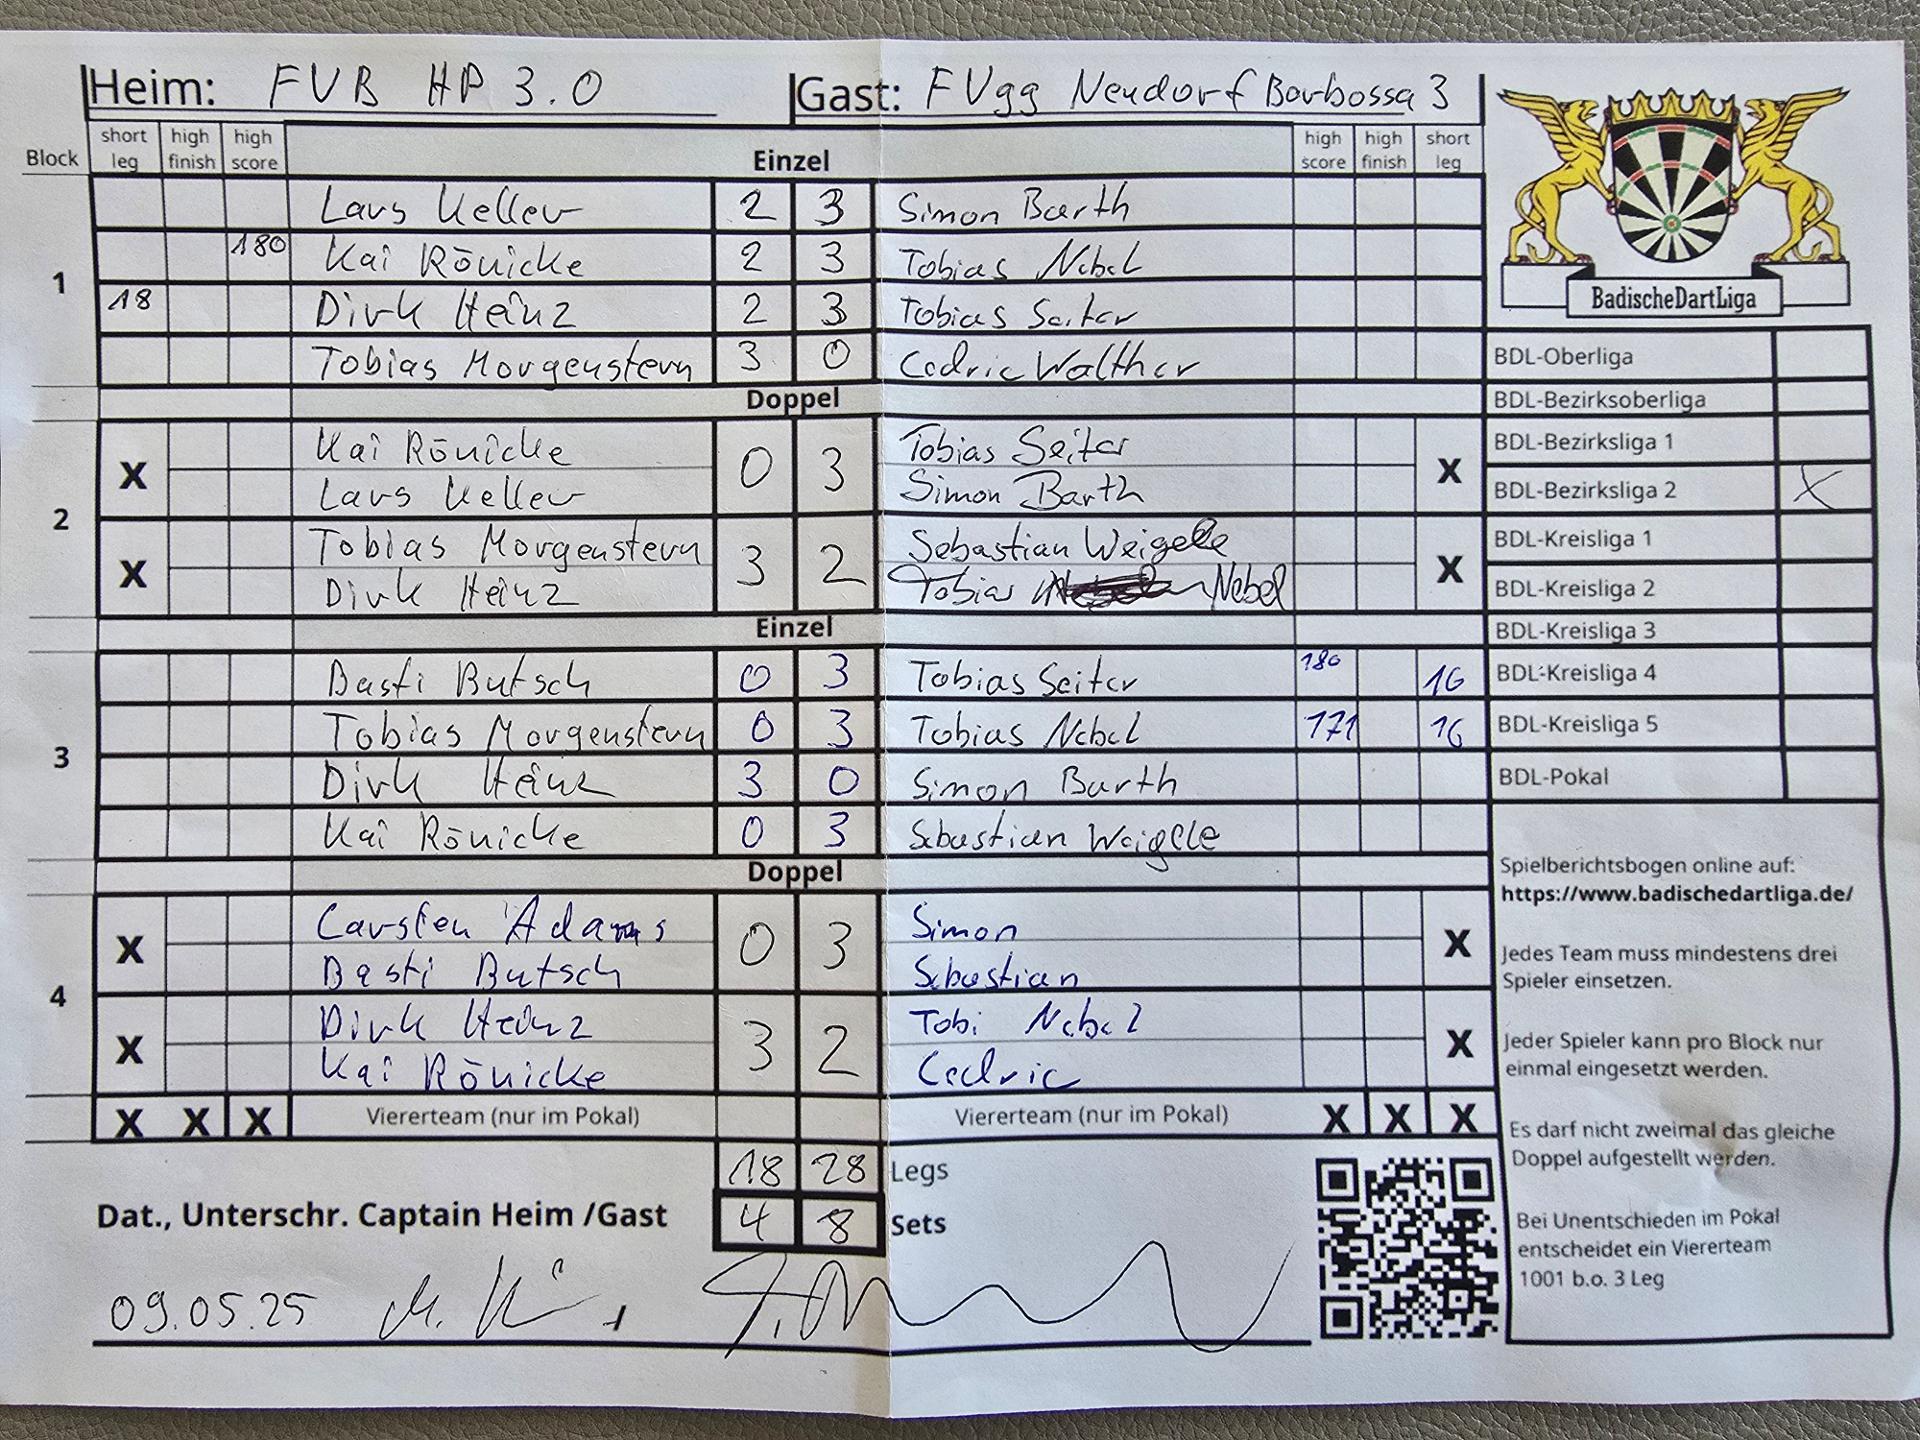 Heim: FVB HP 3.0 Gast: FVgg Neudorf Barbossa 3
Block short leg high finish high score Einzel high score high finish short leg
1
Lars Keller 2 3 Simon Barth
180 Kai Rönicke 2 3 Tobias Nebel
18 Dirk Heinz 2 3 Tobias Seiter
Tobias Morgenstern 3 0 Cedric Walther
Doppel
2
X Kai Rönicke 0 3 Tobias Seiter X
Lars Keller Simon Barth
X Tobias Morgenstern 3 2 Sebastian Weigele X
Dirk Heinz Tobias Nebel
Einzel
3
Basti Butsch 0 3 Tobias Seiter 180 16
Tobias Morgenstern 0 3 Tobias Nebel 171 16
Dirk Heinz 3 0 Simon Barth
Kai Rönicke 0 3 Sebastian Weigele
Doppel
4
X Carsten Adams 0 3 Simon X
Basti Butsch Sebastian
X Dirk Heinz 3 2 Tobi Nebel X
Kai Rönicke Cedric
X X X Viererteam (nur im Pokal) Viererteam (nur im Pokal) X X X
18 28 Legs
Dat., Unterschr. Captain Heim /Gast 4 8 Sets
09.05.25
BadischeDartLiga
BDL-Oberliga
BDL-Bezirksoberliga
BDL-Bezirksliga 1
BDL-Bezirksliga 2 X
BDL-Kreisliga 1
BDL-Kreisliga 2
BDL-Kreisliga 3
BDL-Kreisliga 4
BDL-Kreisliga 5
BDL-Pokal
Spielberichtsbogen online auf:
https://www.badischedartliga.de/
Jedes Team muss mindestens drei
Spieler einsetzen.
Jeder Spieler kann pro Block nur
einmal eingesetzt werden.
Es darf nicht zweimal das gleiche
Doppel aufgestellt werden.
Bei Unentschieden im Pokal
entscheidet ein Viererteam
1001 b.o. 3 Leg